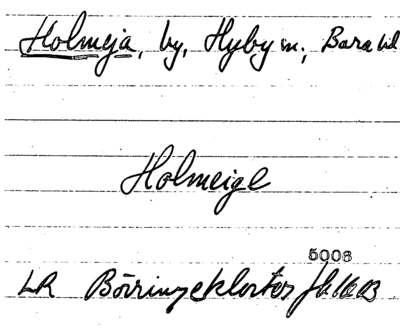 Holmeja, by, Hyby sn, Bara hd
Holmeige
5008
LR Börringekloster jb 1603